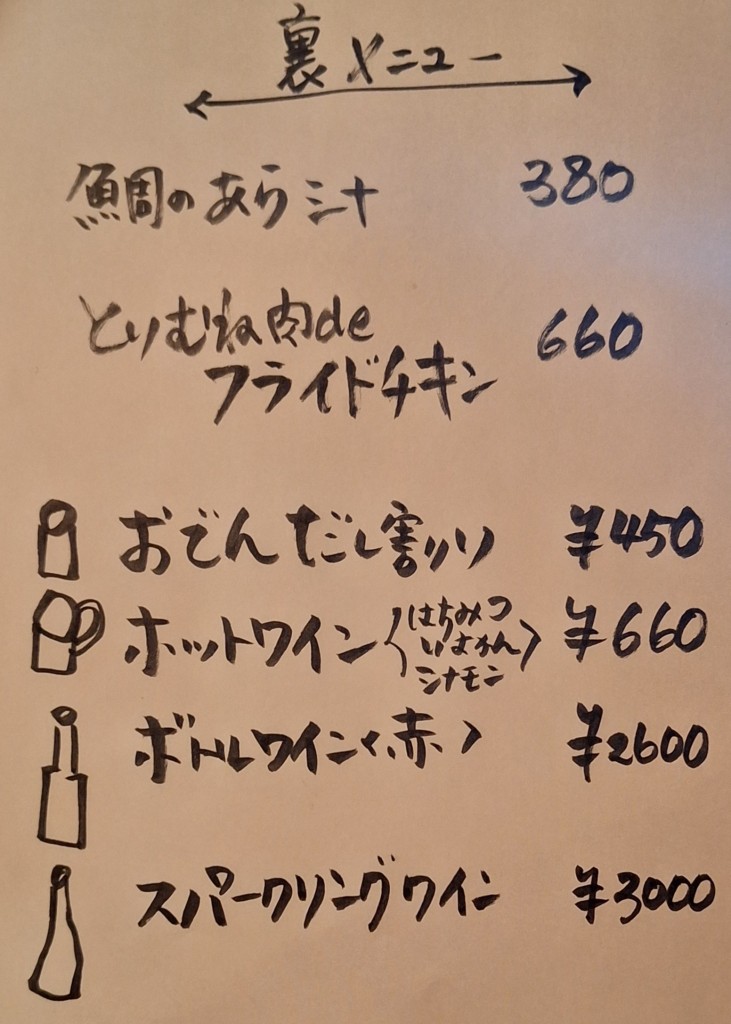 裏メニュー
鯛のあら汁 380
とりむね肉de
フライドチキン 660
おでんだし割り ¥450
ホットワイン〈はちみつ
いよかん
シナモン〉 ¥660
ボトルワイン〈赤〉 ¥2600
スパークリングワイン ¥3000